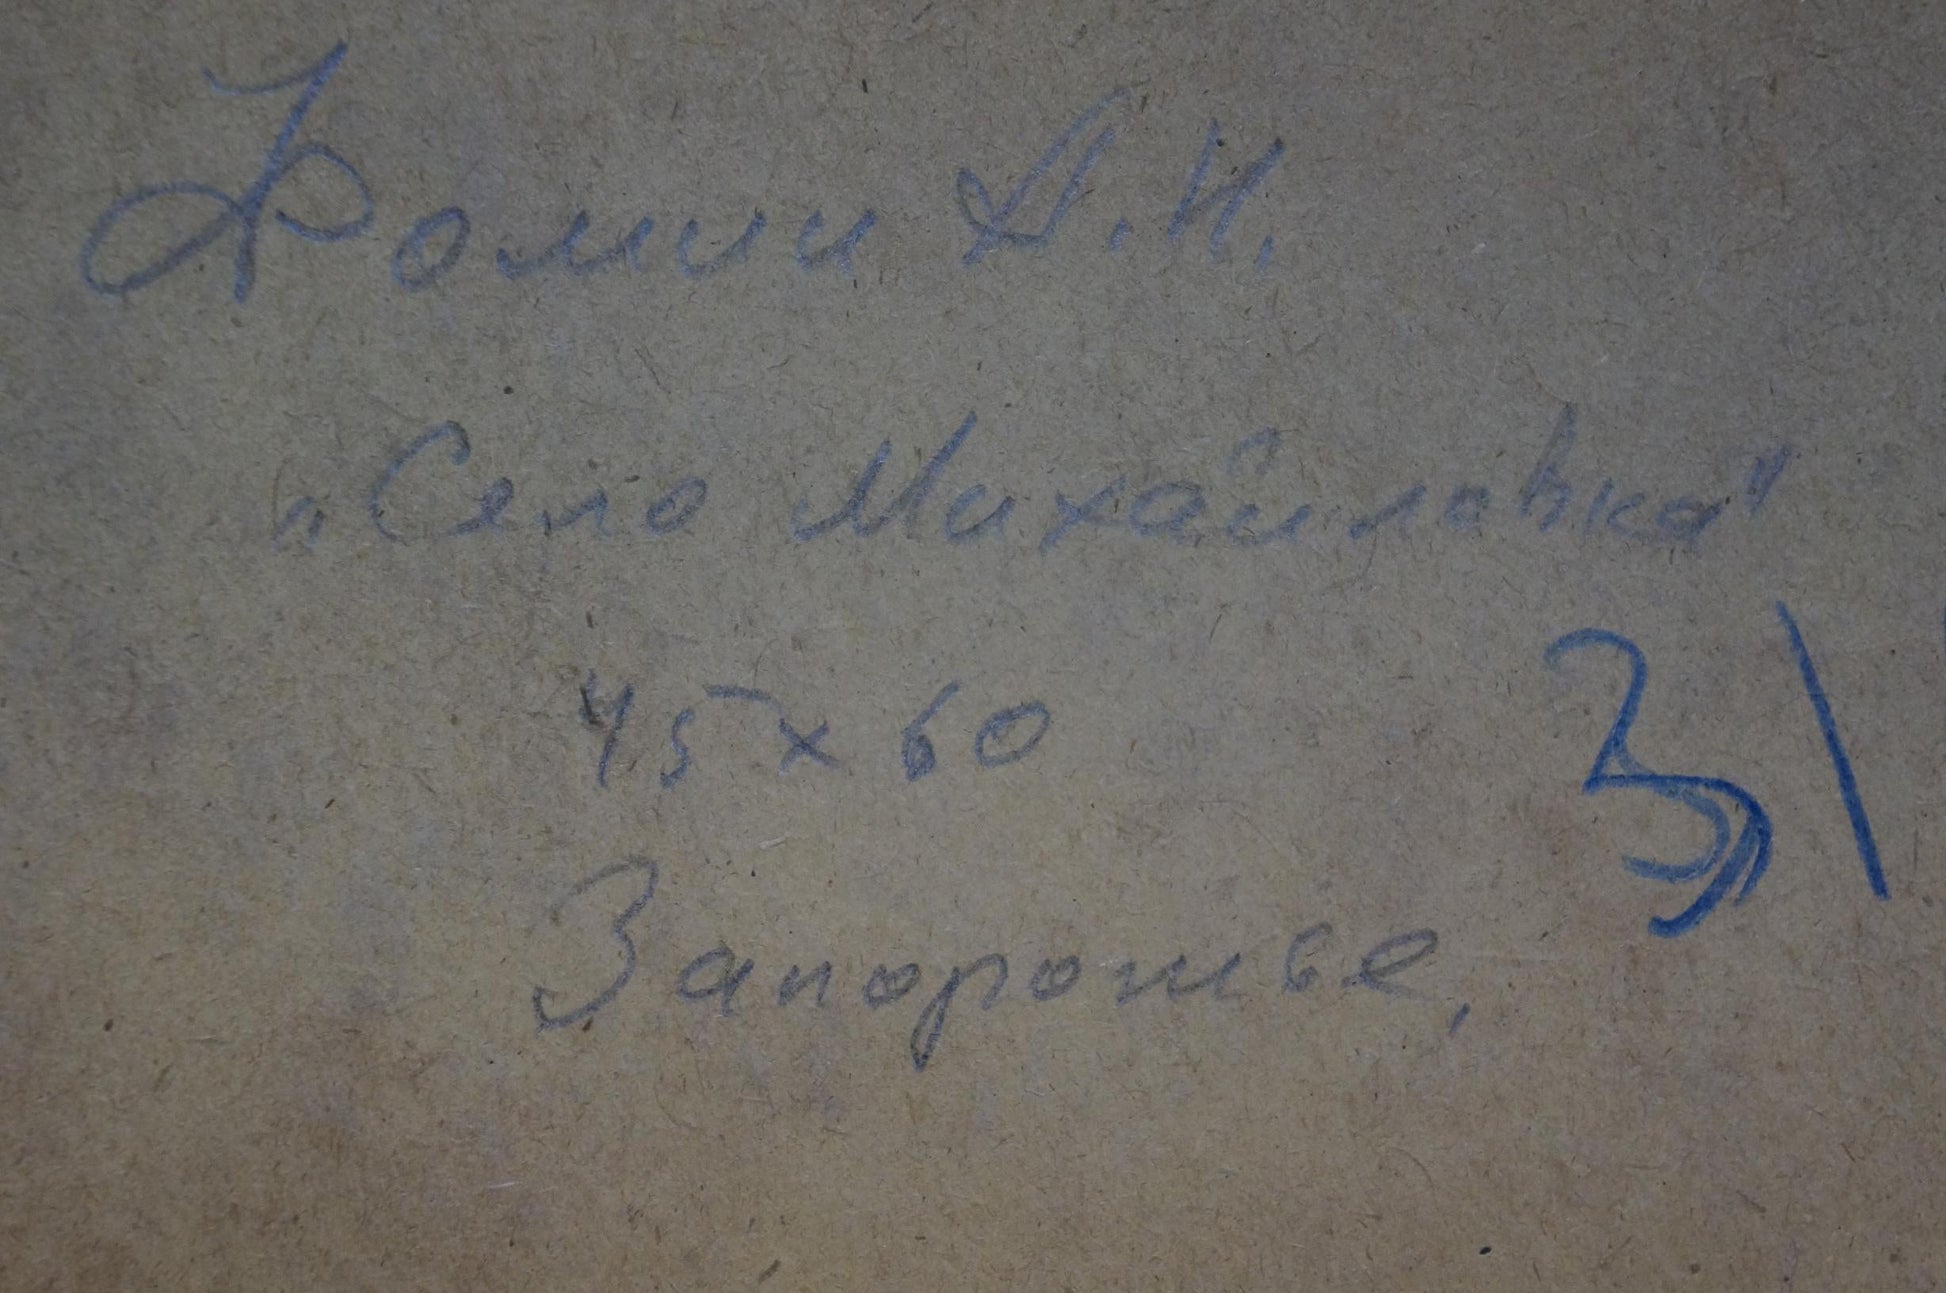 Фомин А.И.
„Село Михайловка"
45 х 60
3\
Запорожье,